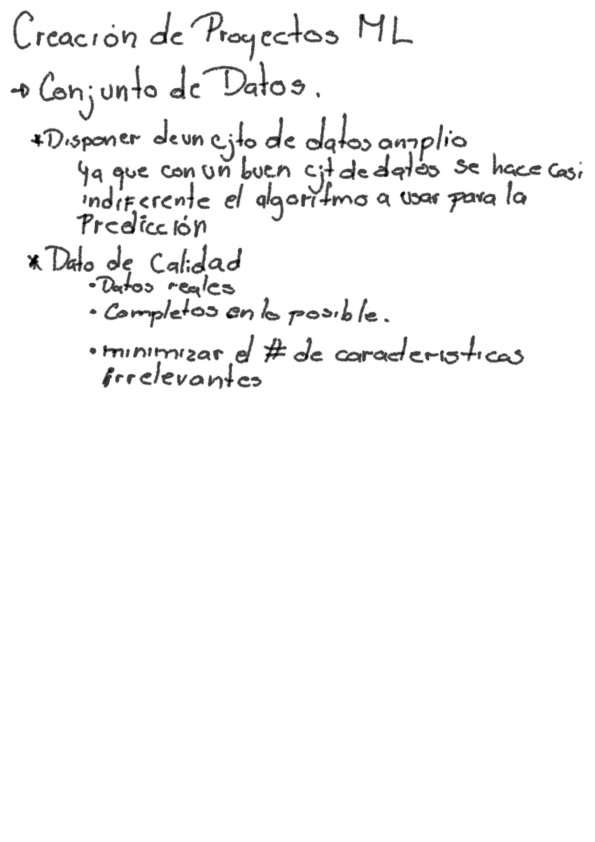 Creación de Proyectos ML
→ Conjunto de Datos.
* Disponer de un cjto de datos amplio
ya que con un buen cjt de datos se hace casi
indiferente el algoritmo a usar para la
Predicción
* Dato de Calidad
• Datos reales
• Completos en lo posible.
• minimizar el # de caracteristicas
irrelevantes